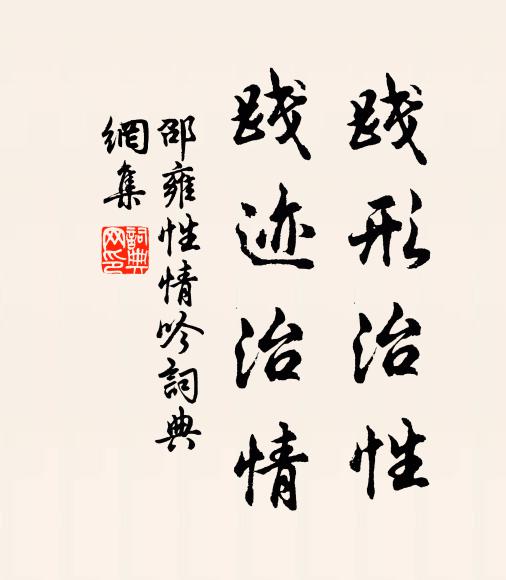 践形治性
践迹治情
邵雍性情吟詞典
網集
詞典
网印